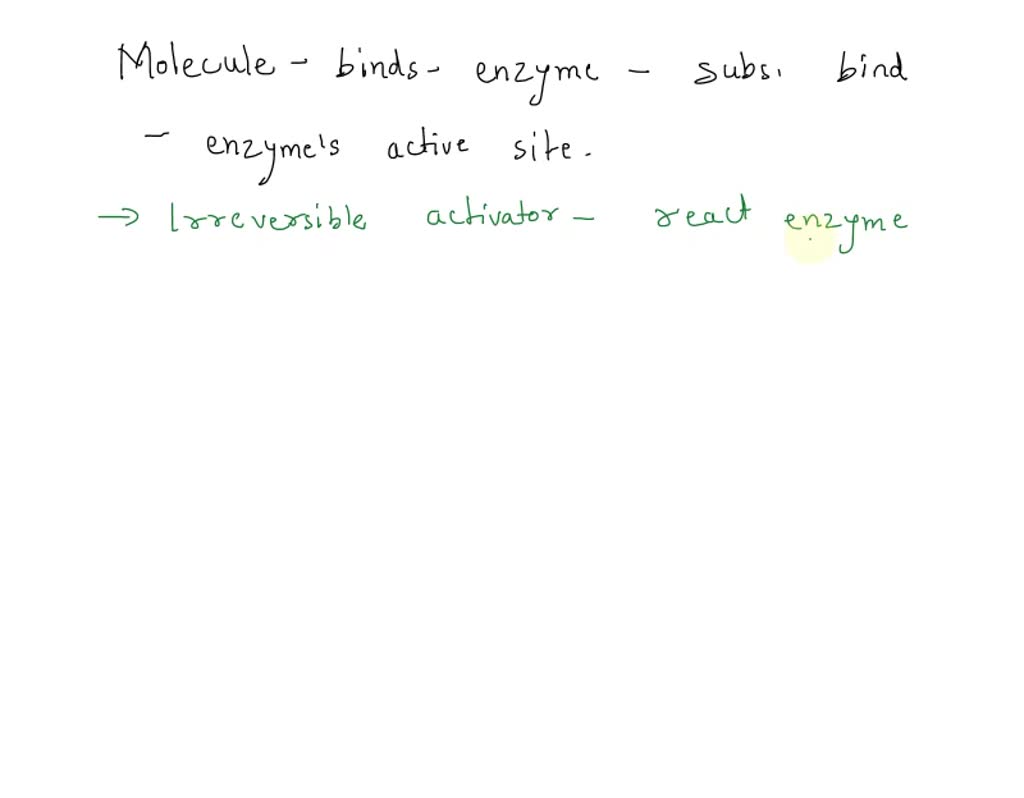 Molecule - binds - enzyme - subs. bind
- enzyme's active site.
→ Irreversible activator - react enzyme